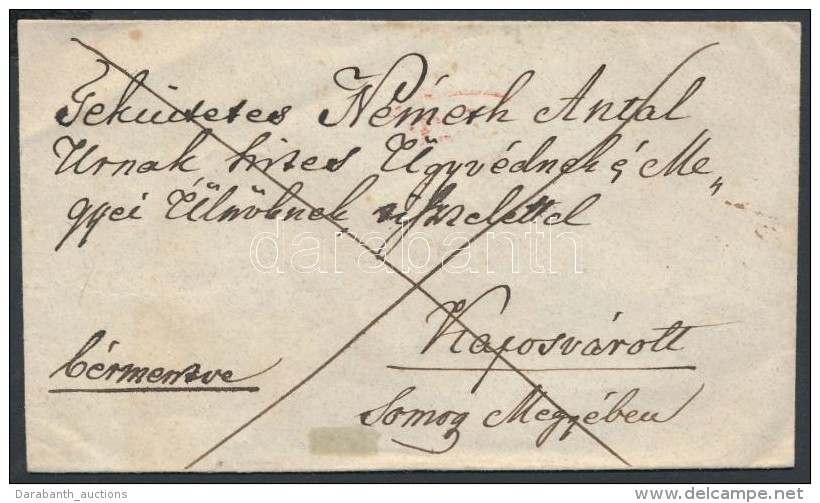 Tekintetes Németh Antal
Urnak hites Ügyvédnek é's Me„
gyei Ülnöknek tisztelettel
darabanth
Kaposvárott
bérmentve
Somog Megyében
Darabanth_auctions
delcampe.net